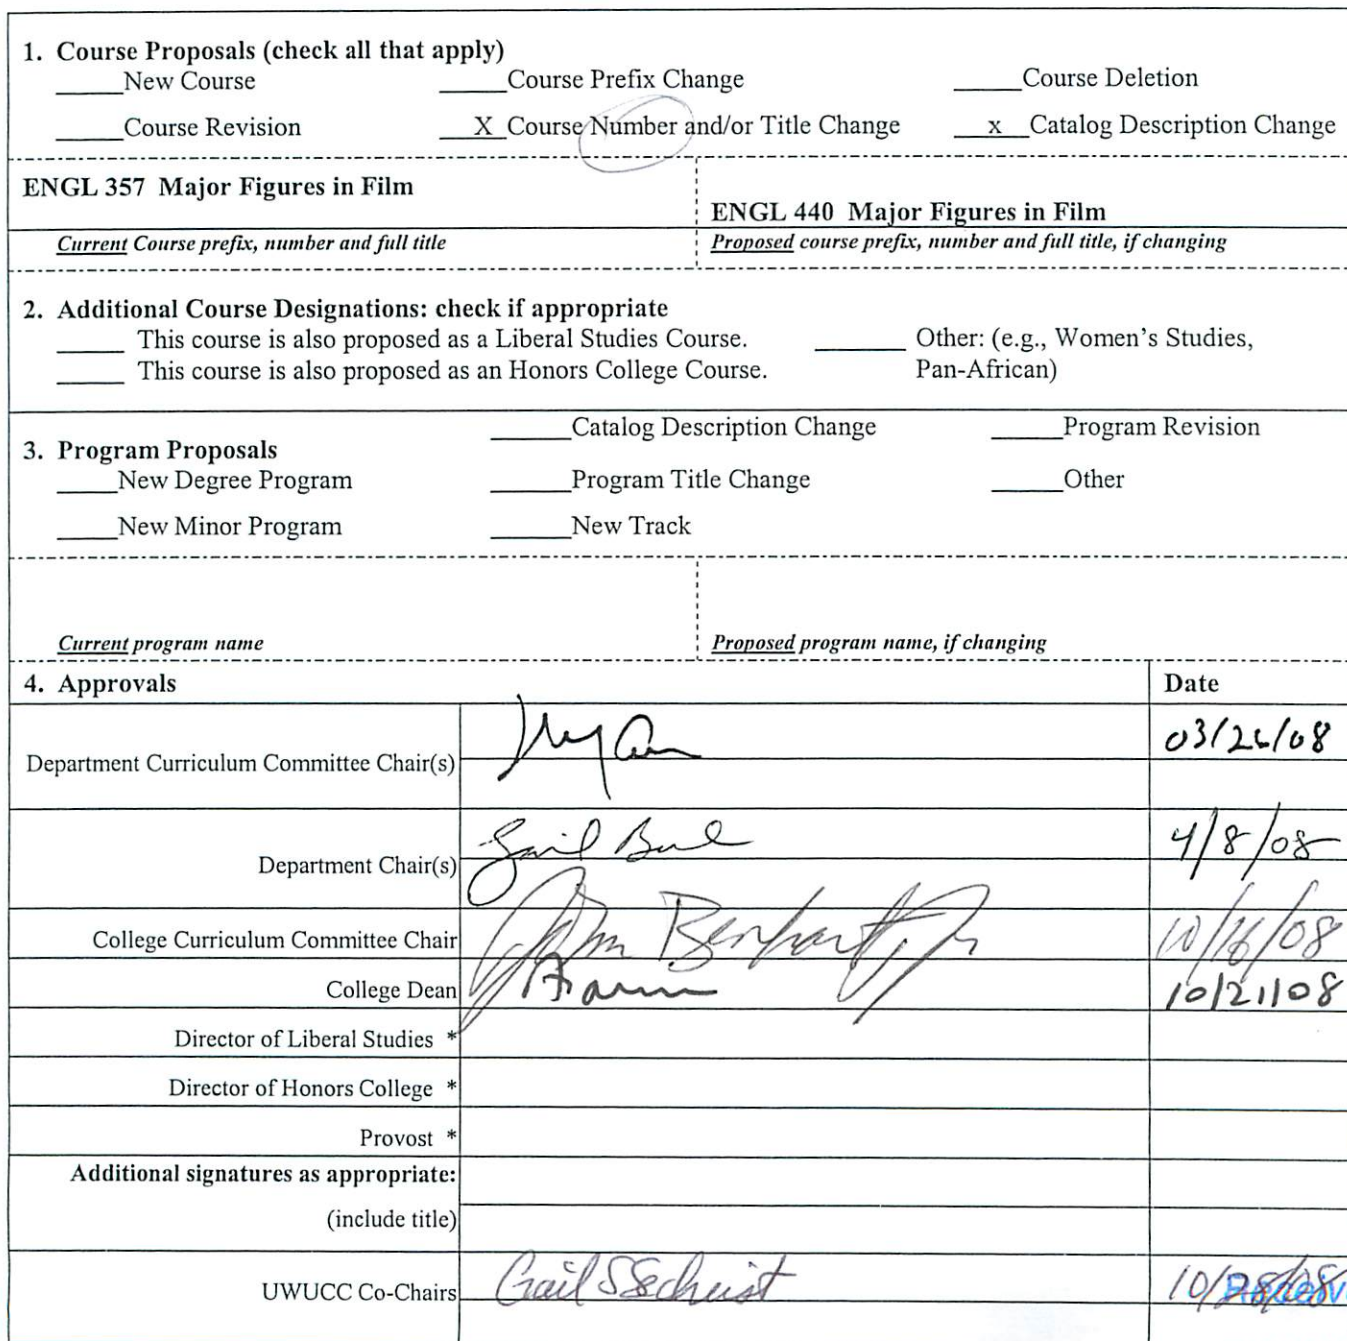 1. Course Proposals (check all that apply)
_____New Course _____Course Prefix Change _____Course Deletion
_____Course Revision __X_Course Number and/or Title Change __x__Catalog Description Change
ENGL 357 Major Figures in Film
ENGL 440 Major Figures in Film
Current Course prefix, number and full title
Proposed course prefix, number and full title, if changing
2. Additional Course Designations: check if appropriate
_____ This course is also proposed as a Liberal Studies Course. _______ Other: (e.g., Women's Studies,
_____ This course is also proposed as an Honors College Course. Pan-African)
______Catalog Description Change _____Program Revision
3. Program Proposals
_____New Degree Program ______Program Title Change _____Other
_____New Minor Program ______New Track
Current program name
Proposed program name, if changing
4. Approvals Date
Department Curriculum Committee Chair(s) 03/26/08
Department Chair(s) Gail 4/8/08
College Curriculum Committee Chair John Benhart, Jr 10/16/08
College Dean 10/21/08
Director of Liberal Studies *
Director of Honors College *
Provost *
Additional signatures as appropriate:
(include title)
UWUCC Co-Chairs Gail S Sechrist 10/28/08